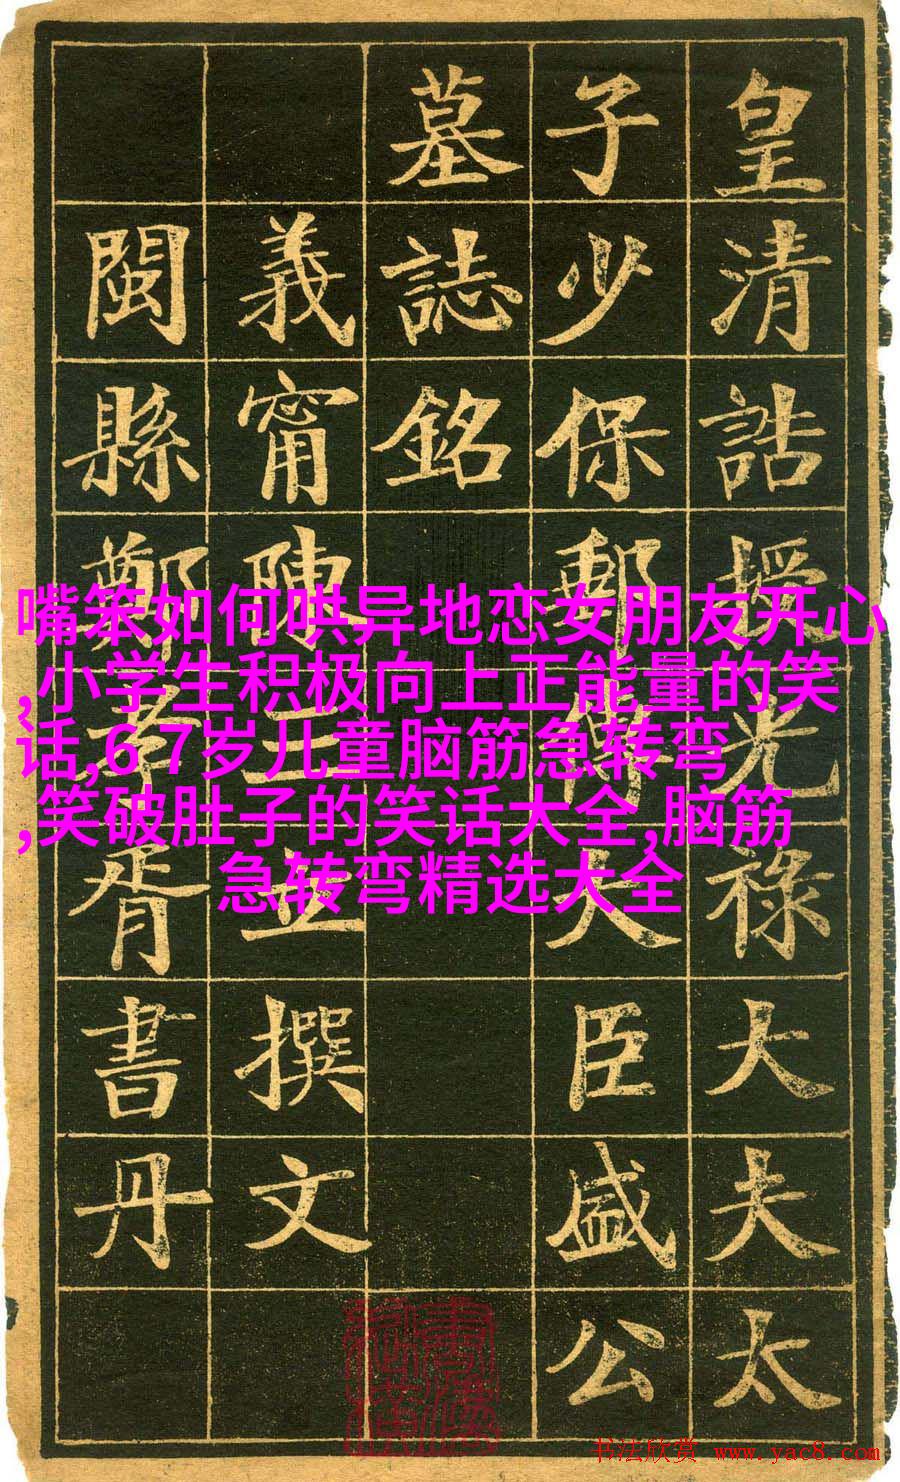 皇清誥授光祿大夫太
子少保郵傳大臣盛公
墓誌銘
義甯陳三立撰文
閩縣鄭孝胥書丹
嘴笨如何哄异地恋女朋友开心
,小学生积极向上正能量的笑
话,6 7岁儿童脑筋急转弯
,笑破肚子的笑话大全,脑筋
急转弯精选大全
书法欣赏 www.yac8.com